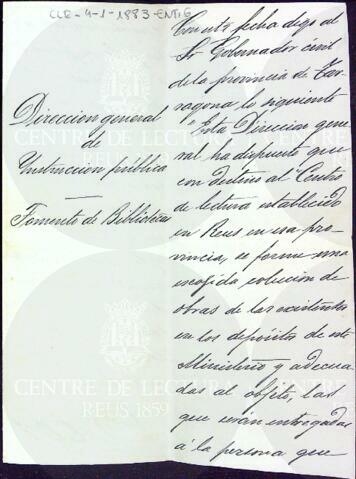 CLE-4-1-1883-ENTIG
Direccion general
de
Instruccion pública
Fomento de Bibliotecas
Con esta fecha digo al
Sr Gobernador civil
de la provincia de Tar
ragona lo siguiente
"Esta Direccion gene
ral ha dispuesto que
con destino al "Centro
de lectura establecido
en Reus en esa pro-
vincia, se forme una
escojida colección de
obras de las existentes
en los depósitos de este
Ministerio y adecua
das al objeto, las
que seran entregadas
á la persona que
CENTRE DE LECTURA
REUS 1859